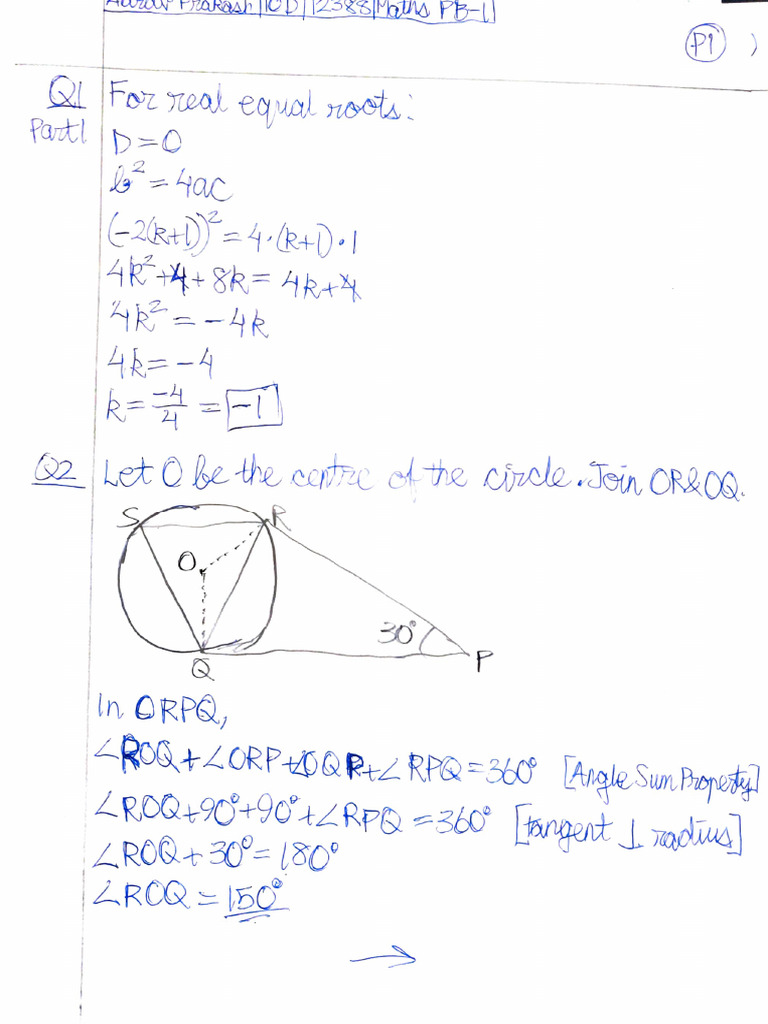 Aarav Prakash|10D|12388|Maths PB-1|
P1
Q1 For real equal roots:
Part1
D=0
b² = 4ac
(-2(k+1))² = 4·(k+1)·1
4k²+4+8k= 4k+4
4k² = -4k
4k= -4
k = -4/4 = -1
Q2 Let O be the centre of the circle. Join OR&OQ.
S R
O
30°
Q P
In ORPQ,
∠ROQ+∠ORP+∠OQR+∠RPQ=360° [Angle Sum Property]
∠ROQ+90°+90°+∠RPQ=360° [tangent ⊥ radius]
∠ROQ+30°=180°
∠ROQ=150°
→